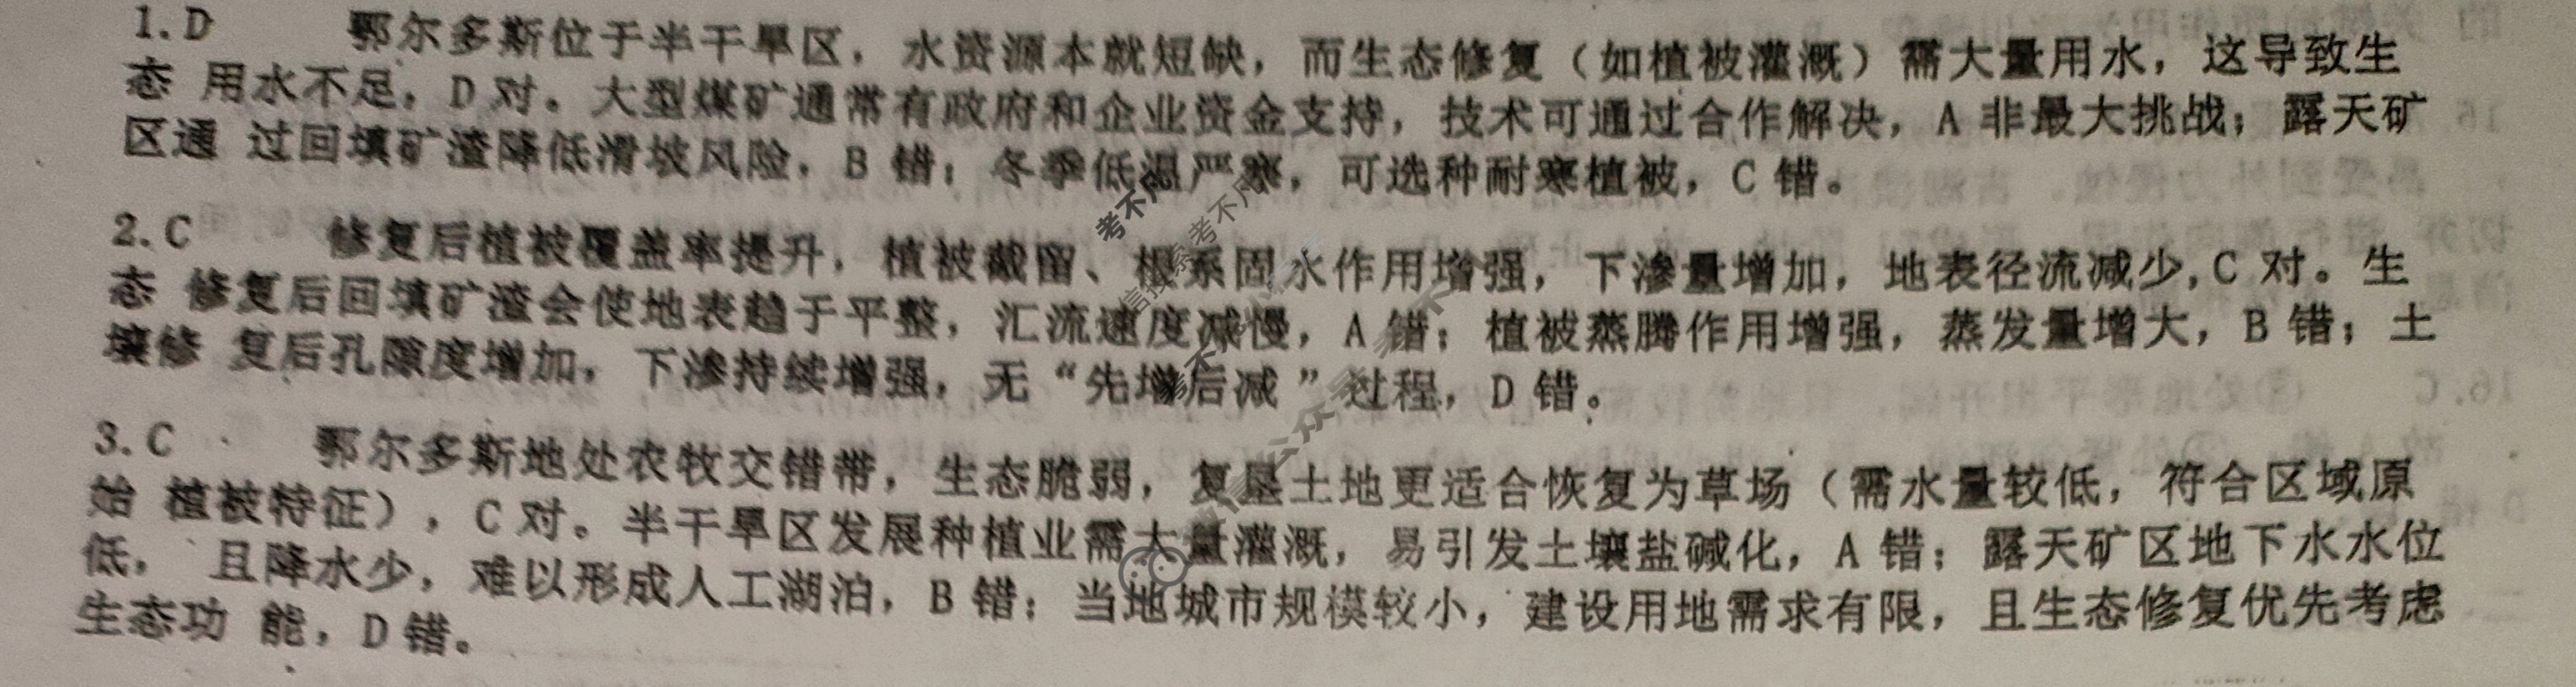 1.D 鄂尔多斯位于半干旱区，水资源本就短缺，而生态修复（如植被灌溉）需大量用水，这导致生
态 用水不足，D 对。大型煤矿通常有政府和企业资金支持，技术可通过合作解决，A 非最大挑战；露天矿
区通 过回填矿渣降低滑坡风险，B 错；冬季低温严寒，可选种耐寒植被，C 错。
2.C 修复后植被覆盖率提升，植被截留、根系固水作用增强，下渗量增加，地表径流减少,C 对。生
态 修复后回填矿渣会使地表趋于平整，汇流速度减慢，A 错；植被蒸腾作用增强，蒸发量增大，B 错；土
壤修 复后孔隙度增加，下渗持续增强，无“先增后减”过程，D 错。
3.C 鄂尔多斯地处农牧交错带，生态脆弱，复垦土地更适合恢复为草场（需水量较低，符合区域原
始 植被特征），C 对。半干旱区发展种植业需大量灌溉，易引发土壤盐碱化，A 错；露天矿区地下水水位
低， 且降水少，难以形成人工湖泊，B 错；当地城市规模较小，建设用地需求有限，且生态修复优先考虑
生态功 能，D 错。
考不凡
考不凡